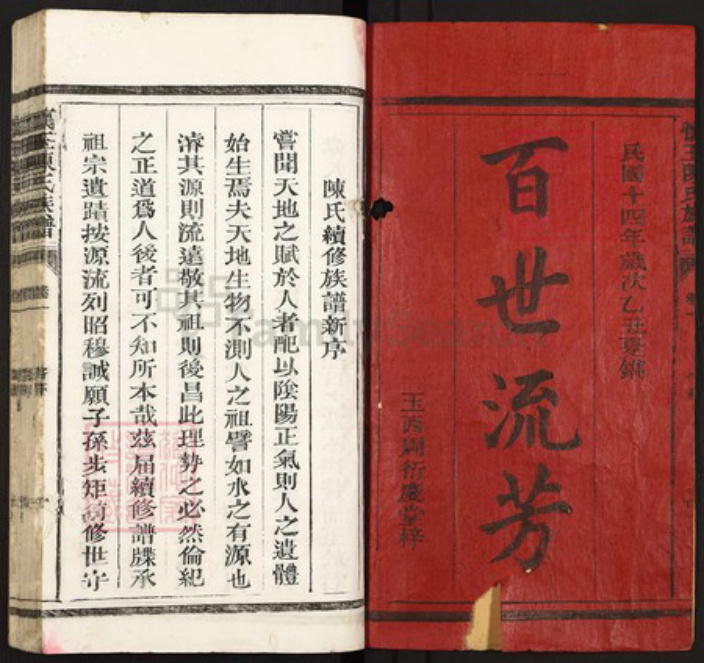 民國十四年歲次乙丑夏鐫
百世流芳
玉西周衍慶堂梓
陳氏續修族譜新序
嘗聞天地之賦於人者配以陰陽正氣則人之遺體
始生焉夫天地生物不測人之祖譬如水之有源也
濬其源則流遠敬其祖則後昌此理勢之必然倫紀
之正道爲人後者可不知所本哉茲届續修譜牒承
祖宗遺蹟按源流列昭穆誠願子孫步矩循修世守
陳氏族譜
FamilySearch